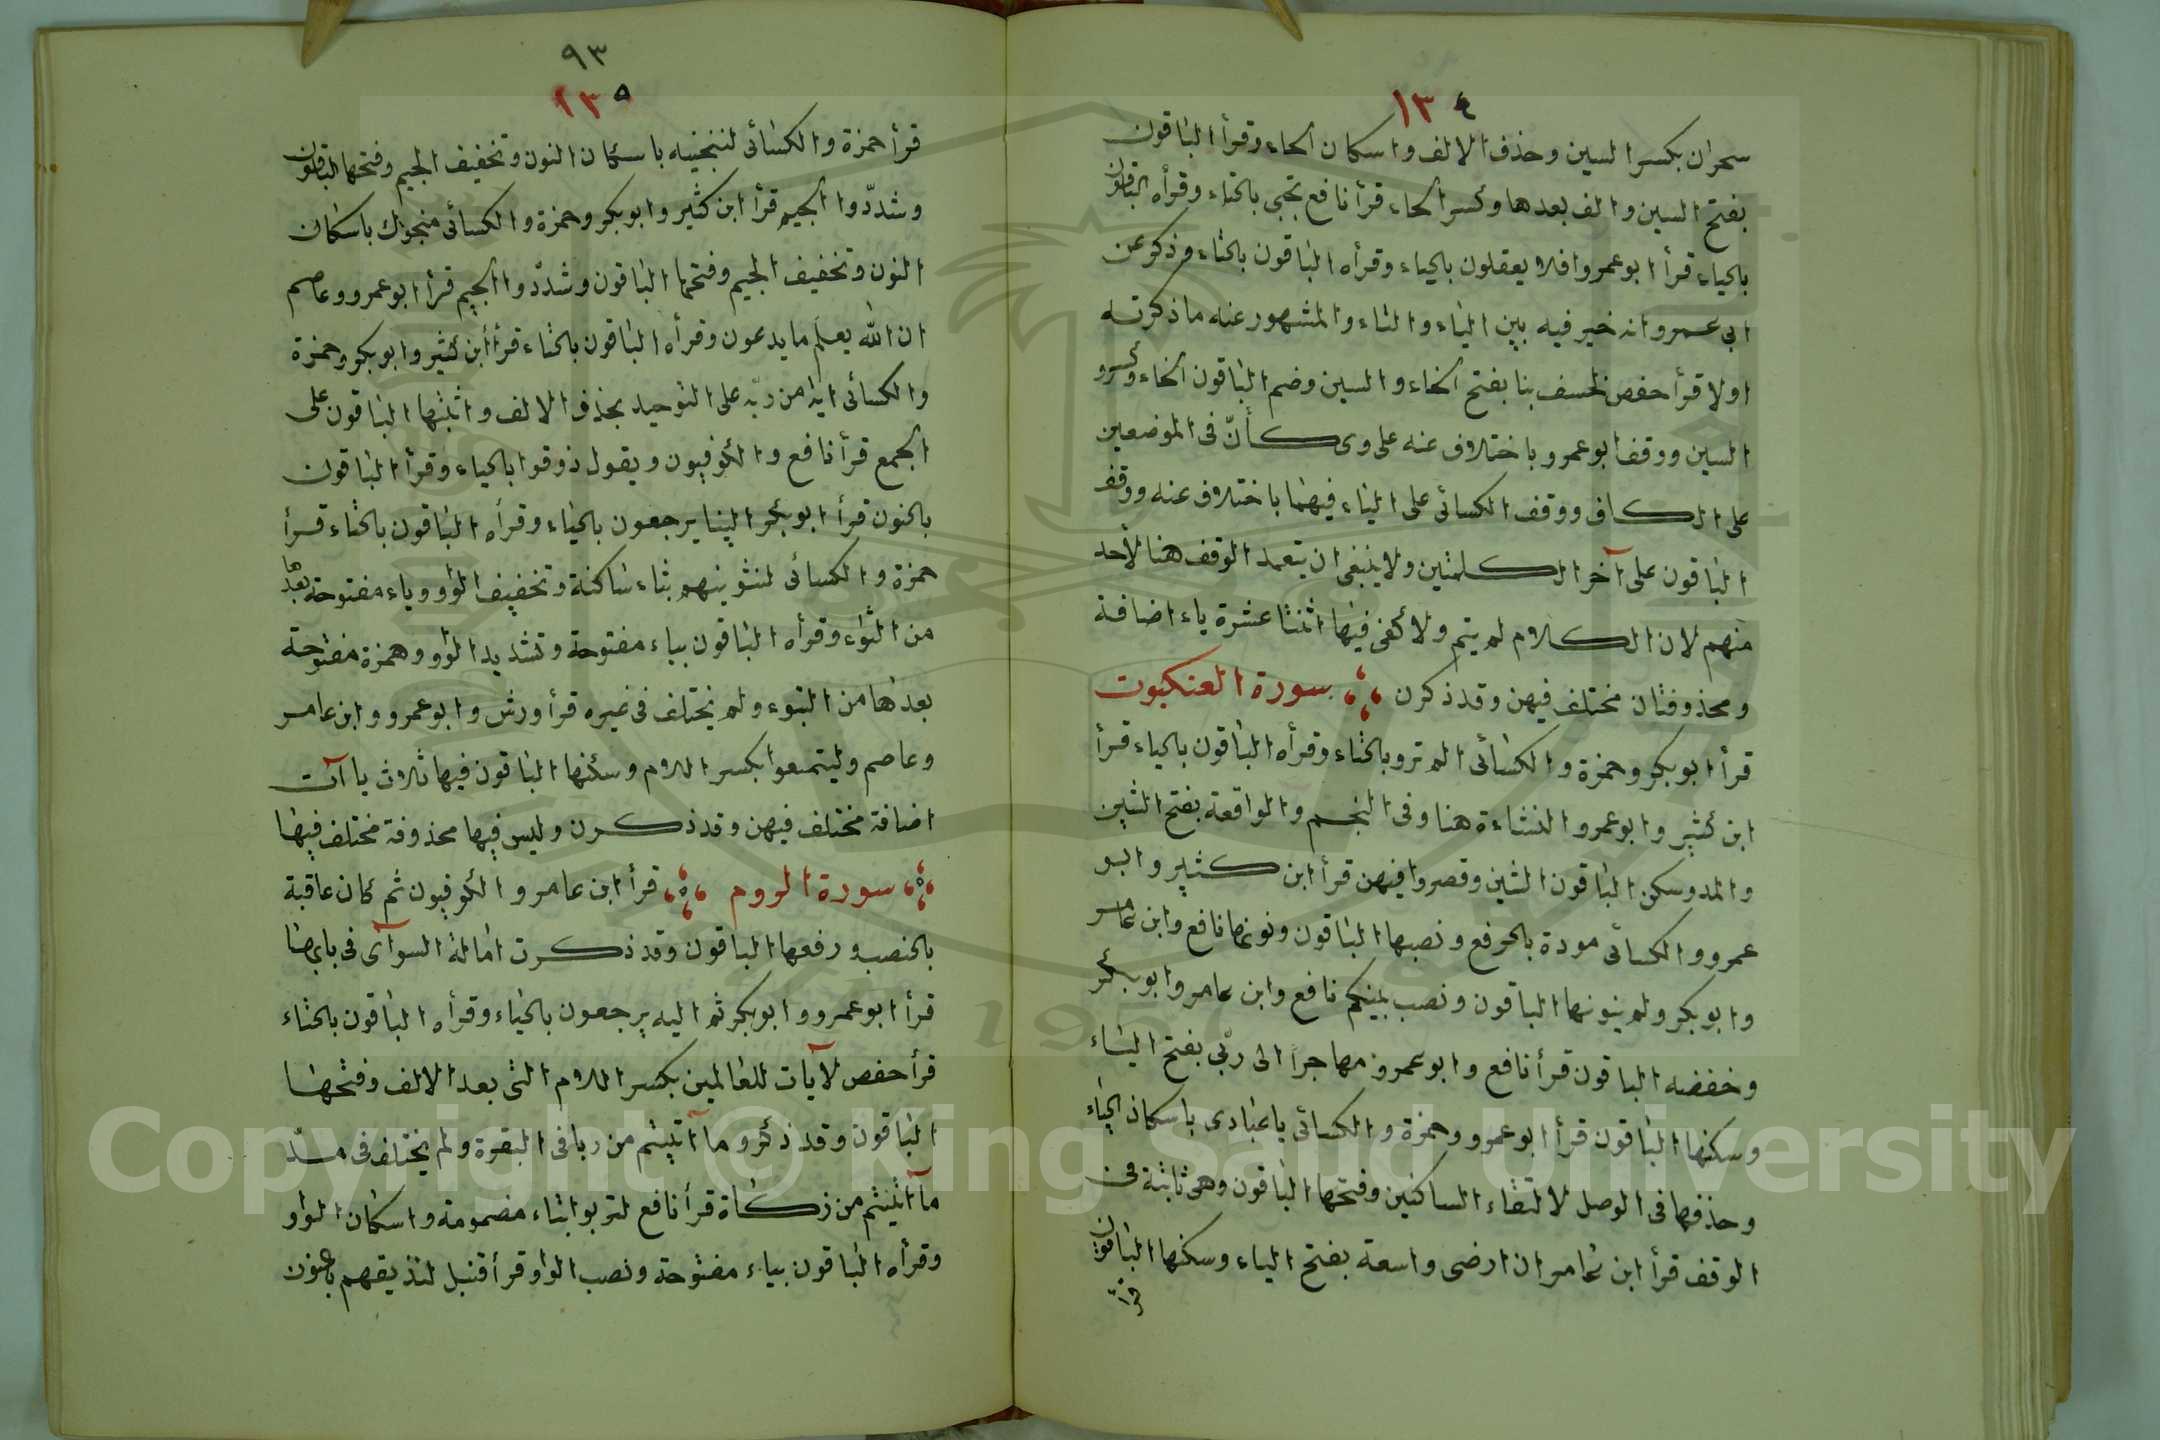 ١٣٤
سحران بكسر السين وحذف الالف واسكان الحاء وقرأ الباقون
بفتح السين والف بعدها وكسر الحاء قرأ نافع تجبى بالتاء وقرأه الباقون
بالياء قرأ ابو عمرو افلا يعقلون بالياء وقرأه الباقون بالتاء وذكر عن
ابى عمرو انه خير فيه بين الياء والتاء والمشهور عنه ما ذكرته
اولا قرأ حفص لخسف بنا بفتح الخاء والسين وضم الباقون الخاء وكسروا
السين ووقف ابو عمرو باختلاف عنه على وى كأنّ فى الموضعين
على الكاف ووقف الكسائى على الياء فيهما باختلاف عنه ووقف
الباقون على آخر الكلمتين ولا ينبغى ان يتعمد الوقف هنا لأحد
منهم لان الكلام لم يتم ولا كفى فيها اثنتا عشرة ياء اضافة
ومحذوفتان مختلف فيهن وقد ذكرن سورة العنكبوت
قرأ ابو بكر وحمزة والكسائى الم تروا بالتاء وقرأه الباقون بالياء قرأ
ابن كثير وابو عمرو النشاءة هنا وفى النجم والواقعة بفتح الشين
والمد وسكن الباقون الشين وقصروا فيهن قرأ ابن كثير وابو
عمرو والكسائى مودة بالرفع ونصبها الباقون ونونها نافع وابن عامر
وابو بكر ولم ينونها الباقون ونصب بينكم نافع وابن عامر وابو بكر
وخفضه الباقون قرأ نافع وابو عمرو مهاجرا الى ربّى بفتح الياء
وسكنها الباقون قرأ ابو عمرو وحمزة والكسائى يا عبادى باسكان الياء
وحذفها فى الوصل لالتقاء الساكنين وفتحها الباقون وهى ثابتة فى
الوقف قرأ ابن عامر ان ارضى واسعة بفتح الياء وسكنها الباقون
قرأ
٩٣
١٣٥
قرأ حمزة والكسائى لننجينه باسكان النون وتخفيف الجيم وفتحها الباقون
وشدّدوا الجيم قرأ ابن كثير وابو بكر وحمزة والكسائى منجوك باسكان
النون وتخفيف الجيم وفتحها الباقون وشدّدوا الجيم قرأ ابو عمرو وعاصم
ان الله يعلم ما يدعون وقرأه الباقون بالتاء قرأ ابن كثير وابو بكر وحمزة
والكسائى اية من ربّه على التوحيد بحذف الالف واثبتها الباقون على
الجمع قرأ نافع والكوفيون ويقول ذوقوا بالياء وقرأ الباقون
بالنون قرأ ابو بكر الينا يرجعون بالياء وقرأه الباقون بالتاء قرأ
حمزة والكسائى لنثوينهم بثاء ساكنة وتخفيف الواو وياء مفتوحة بعدها
من الثواء وقرأه الباقون بباء مفتوحة وتشديد الواو وهمزة مفتوحة
بعدها من التبوء ولم يختلف فى غيره قرأ ورش وابو عمرو وابن عامر
وعاصم وليتمتعوا بكسر اللام وسكنها الباقون فيها ثلاث ياآت
اضافة مختلف فيهن وقد ذكرن وليس فيها محذوفة مختلف فيها
سورة الروم قرأ ابن عامر والكوفيون ثم كان عاقبة
بالنصب ورفعها الباقون وقد ذكرت امالة السوآى فى بابها
قرأ ابو عمرو وابو بكر ثم اليه يرجعون بالياء وقرأه الباقون بالتاء
قرأ حفص لآيات للعالمين بكسر اللام التى بعد الالف وفتحها
الباقون وقد ذكر وما آتيتم من ربا فى البقرة ولم يختلف فى مدّ
ما آتيتم من زكاة قرأ نافع لتربوا بتاء مضمومة واسكان الواو
وقرأه الباقون بياء مفتوحة ونصب الواو قرأ قنبل لنذيقهم بالنون
Copyright © King Saud University
1957